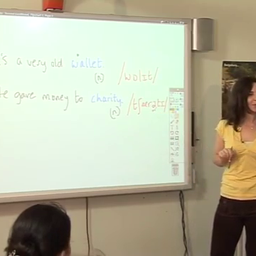 's a very old wallet
(n) /wɒlɪt/
e gave money to charity /tʃærəti/
(n)